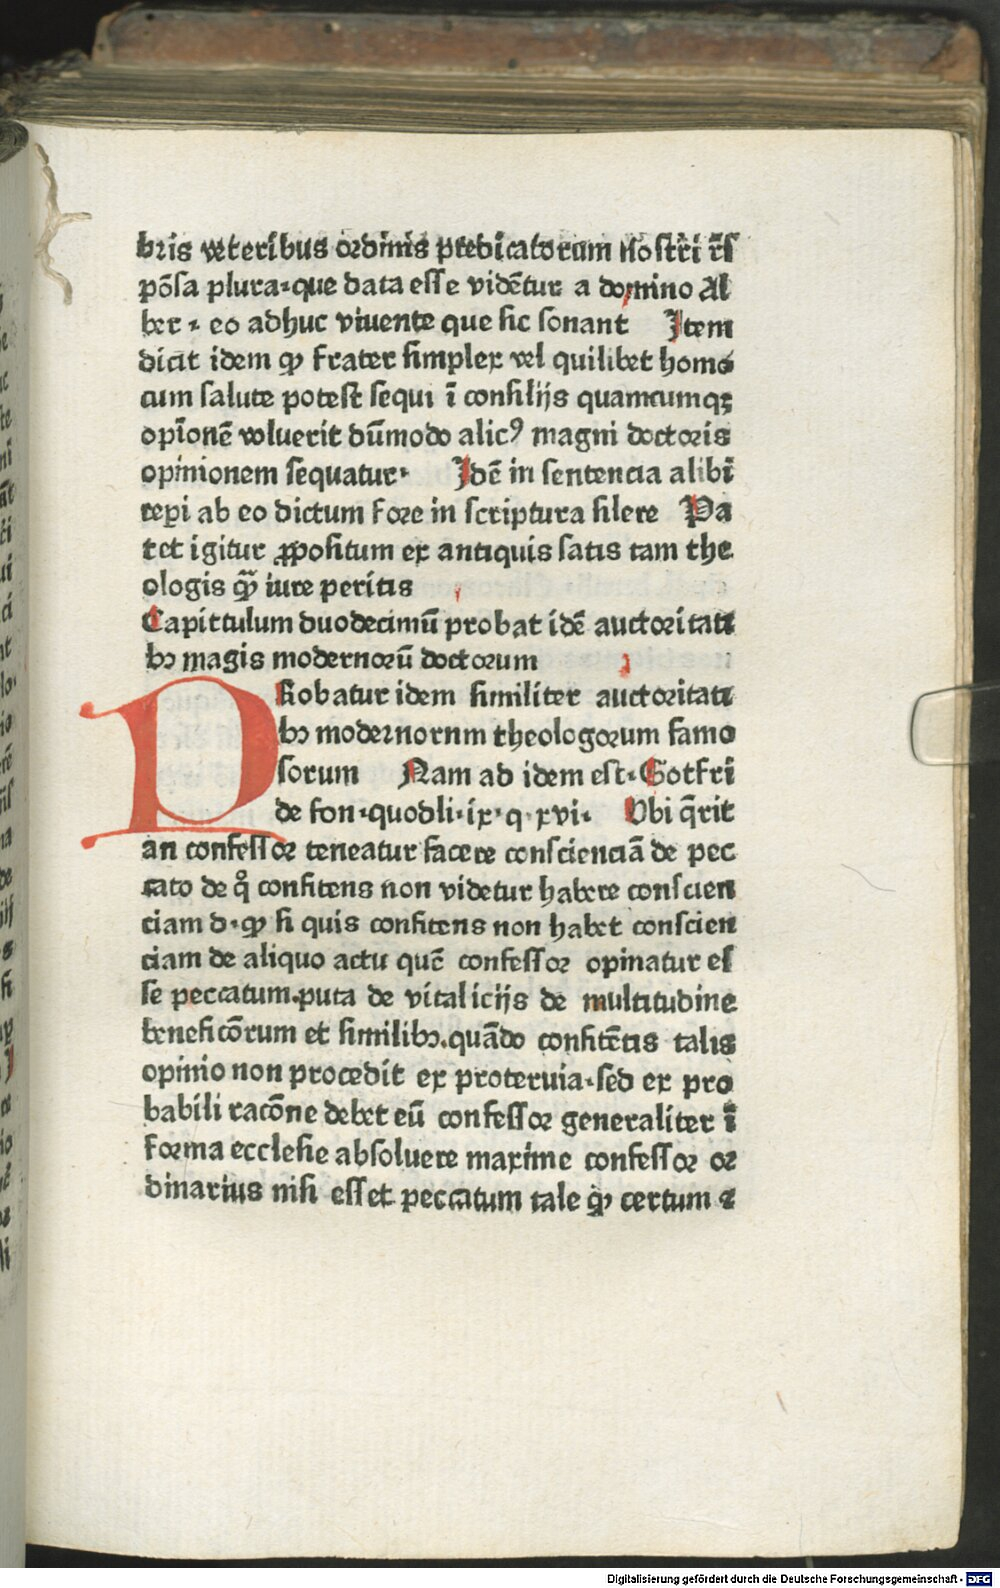 bris veteribus ordinis predicatorum Nostri rs̄
pōsa plura·que data esse vidētur a domino Al
ber· eo adhuc viuente que sic sonant Item
dicit idem ꝙ frater simplex vel quilibet homo
cum salute potest sequi ī consilijs quamcumqꝫ
opīonē voluerit dūmodo alicꝰ magni doctoris
opinionem sequatur· Idē in sentencia alibi
repi ab eo dictum fore in scriptura silere Pa
tet igitur ꝓpositum ex antiquis satis tam the
ologis ꝙ̄ iure peritis
Capittulum duodecimū probat idē auctoritati
bꝫ magis modernorū doctorum
PRobatur idem similiter auctoritati
bꝫ modernornm theologorum famo
sorum Nam ad idem est·Gotfri
de fon·quodli·ix·q·xvi· Vbi q̄rit
an confessor teneatur facere conscienciā de pec
cato de qͦ confitens non videtur habere conscien
ciam d·ꝙ si quis confitens non habet conscien
ciam de aliquo actu quē confessor opinatur es
se peccatum·puta de vitalicijs de multitudine
beneficōrum et similibꝫ·quādo confitētis talis
opinio non procedit ex proteruia·sed ex pro
babili racōne debet eū confessor generaliter ī
forma ecclesie absoluere maxime confessor or
dinarius nisi esset peccatum tale ꝙ certum ⁊
Digitalisierung gefördert durch die Deutsche Forschungsgemeinschaft - DFG